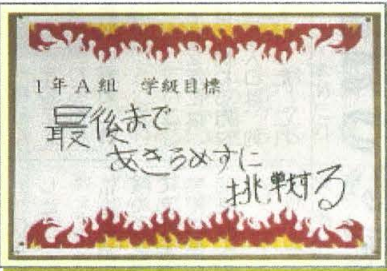 1年A組 学級目標
最後まで
あきらめずに
挑戦する